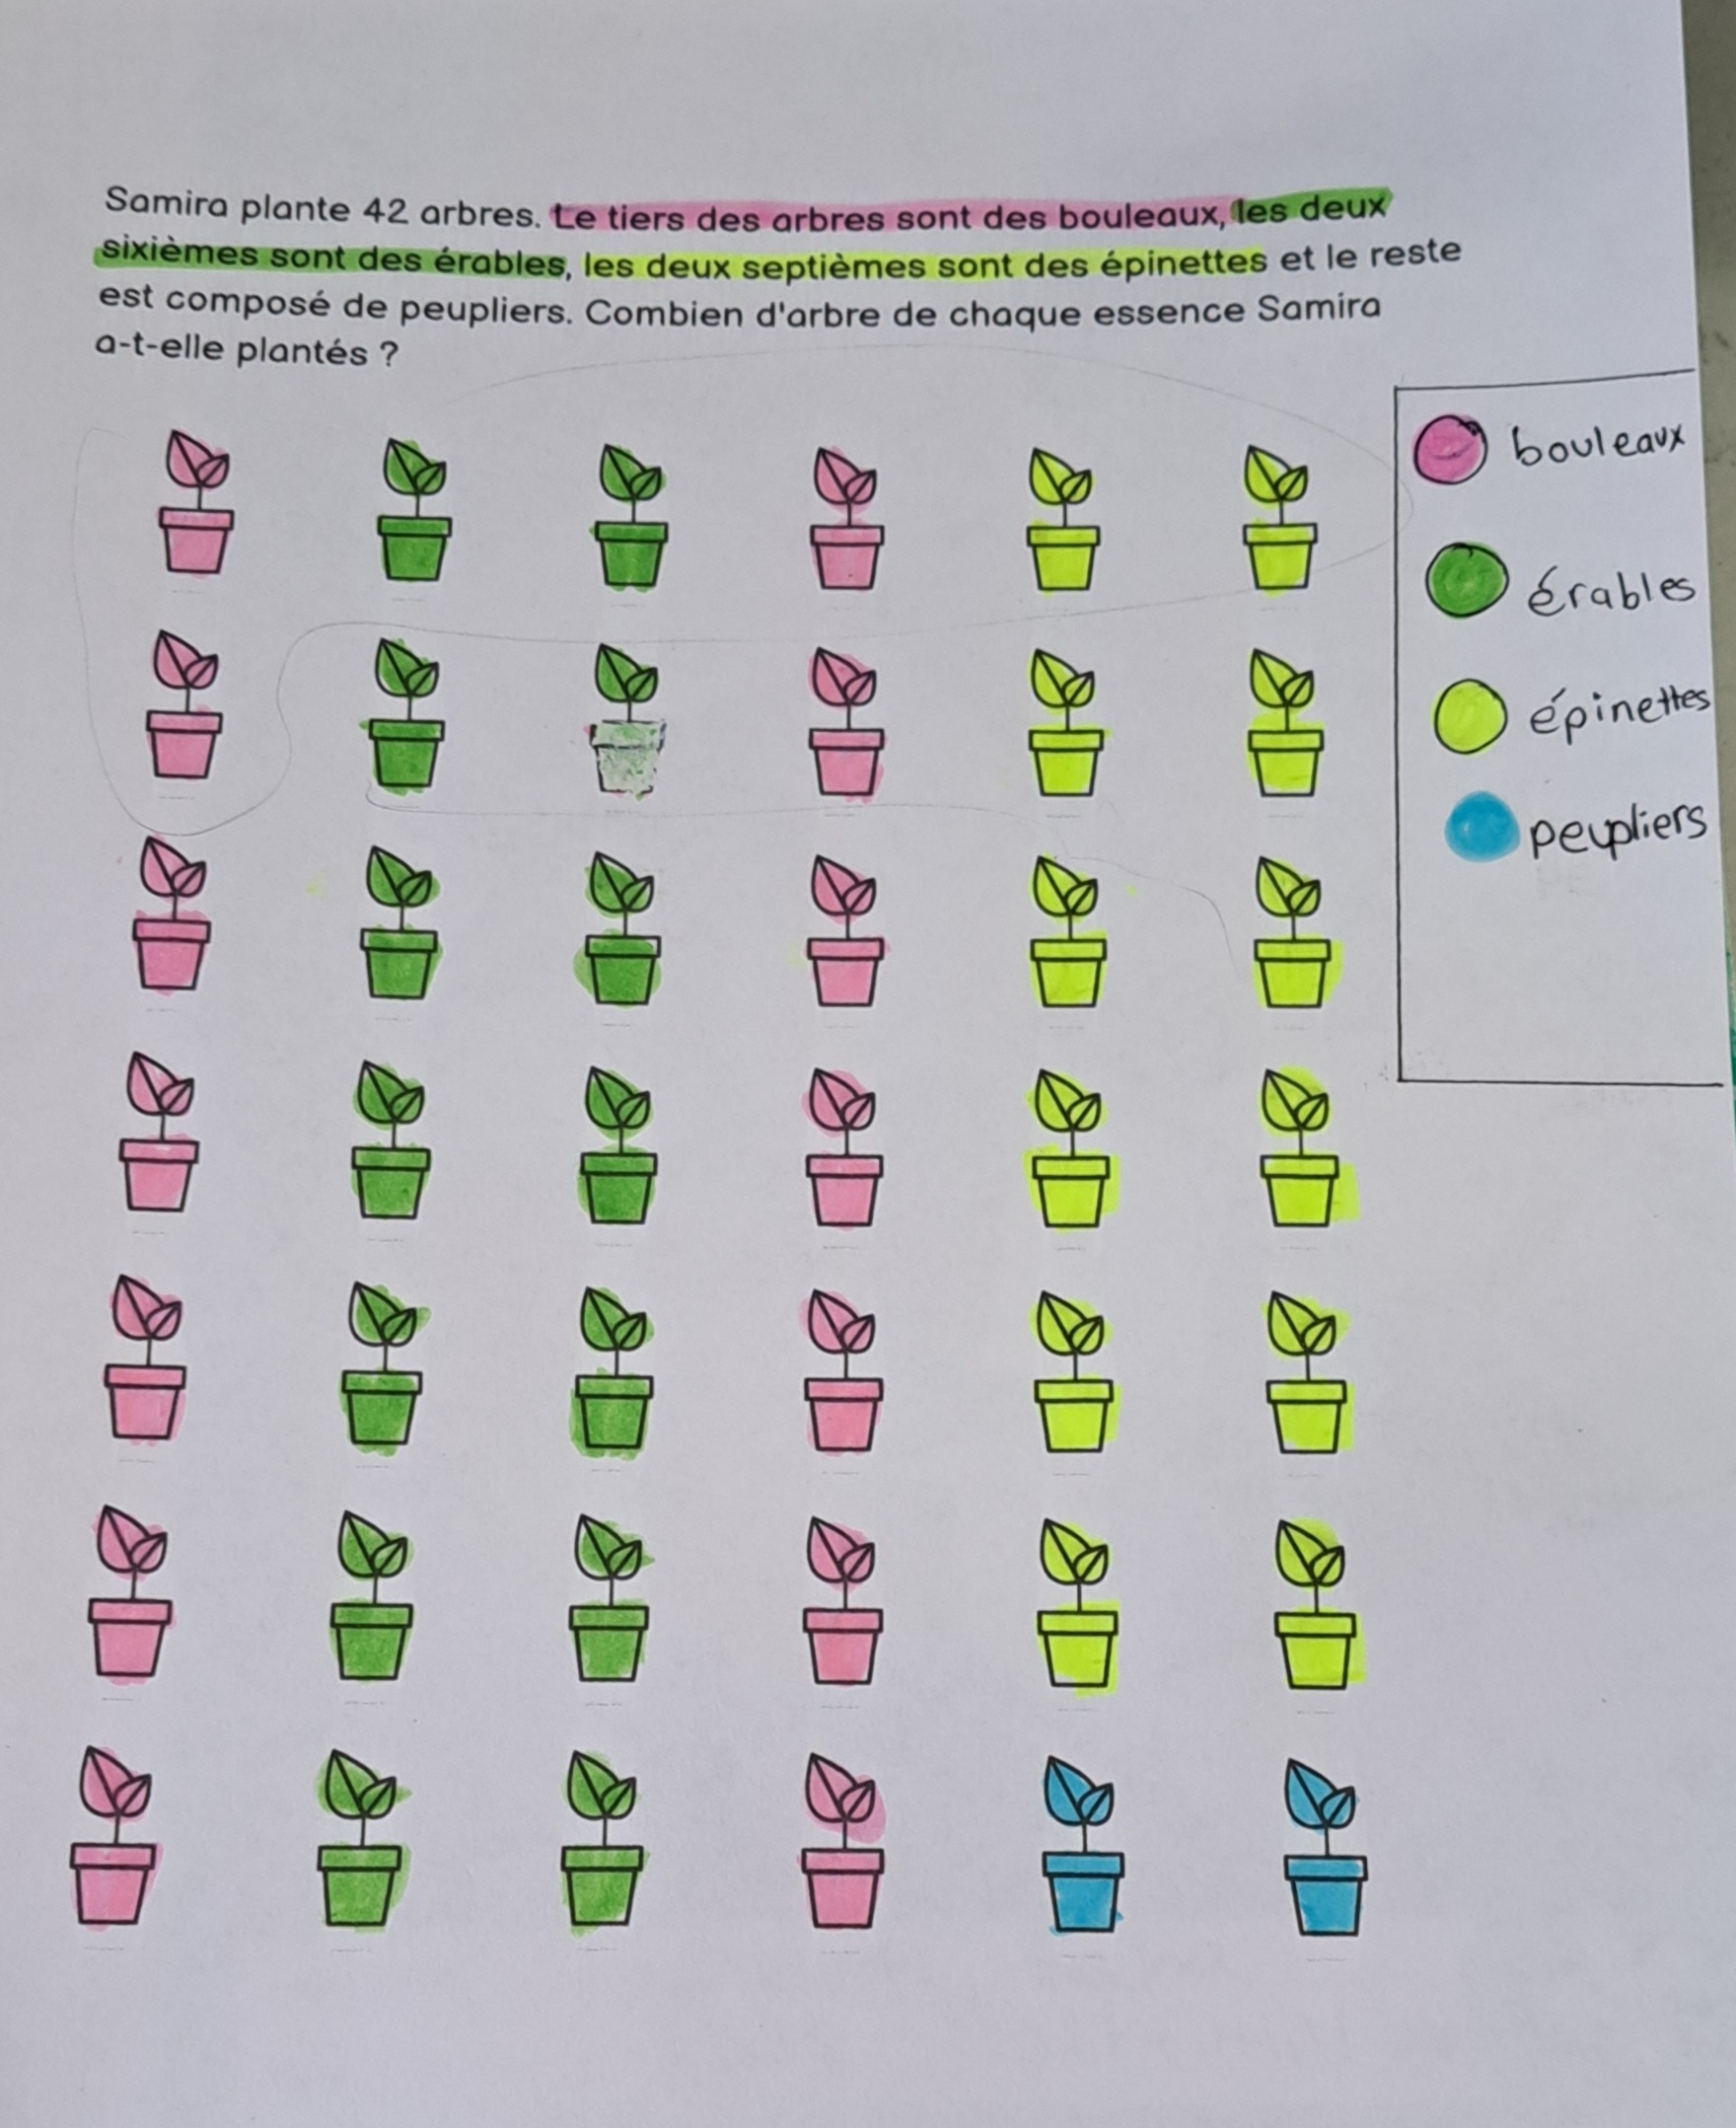 Samira plante 42 arbres. Le tiers des arbres sont des bouleaux, les deux
sixièmes sont des érables, les deux septièmes sont des épinettes et le reste
est composé de peupliers. Combien d'arbre de chaque essence Samira
a-t-elle plantés ?
bouleaux
érables
épinettes
peupliers